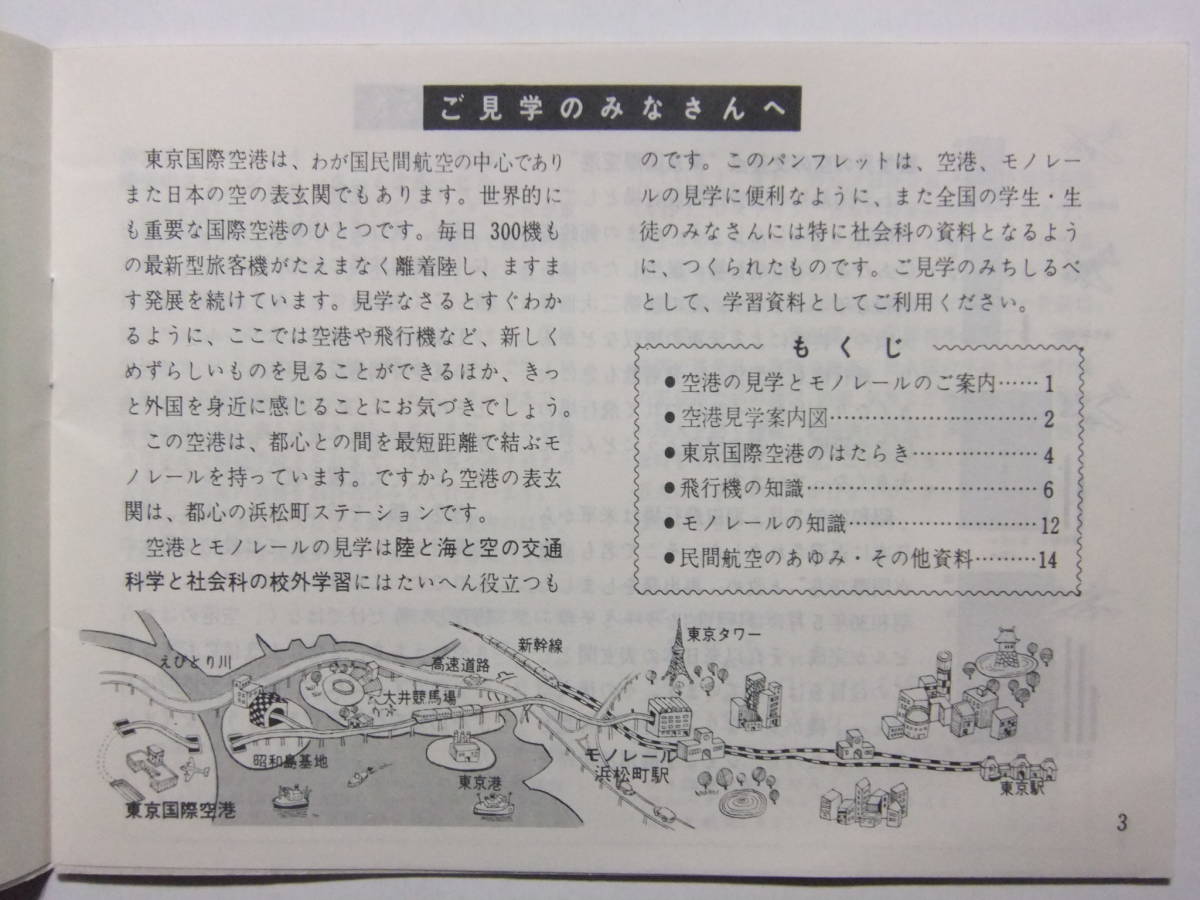 ご見学のみなさんへ
東京国際空港は、わが国民間航空の中心であり
また日本の空の表玄関でもあります。世界的に
も重要な国際空港のひとつです。毎日 300機も
の最新型旅客機がたえまなく離着陸し、ますま
す発展を続けています。見学なさるとすぐわか
るように、ここでは空港や飛行機など、新しく
めずらしいものを見ることができるほか、きっ
と外国を身近に感じることにお気づきでしょう。
この空港は、都心との間を最短距離で結ぶモ
ノレールを持っています。ですから空港の表玄
関は、都心の浜松町ステーションです。
空港とモノレールの見学は陸と海と空の交通
科学と社会科の校外学習にはたいへん役立つも
のです。このパンフレットは、空港、モノレー
ルの見学に便利なように、また全国の学生・生
徒のみなさんには特に社会科の資料となるよう
に、つくられたものです。ご見学のみちしるべ
として、学習資料としてご利用ください。
もくじ
●空港の見学とモノレールのご案内……1
●空港見学案内図……………………2
●東京国際空港のはたらき……………4
●飛行機の知識………………………6
●モノレールの知識…………………12
●民間航空のあゆみ・その他資料………14
えびとり川
高速道路
新幹線
東京タワー
大井競馬場
昭和島基地
東京港
モノレール
浜松町駅
東京駅
東京国際空港
3